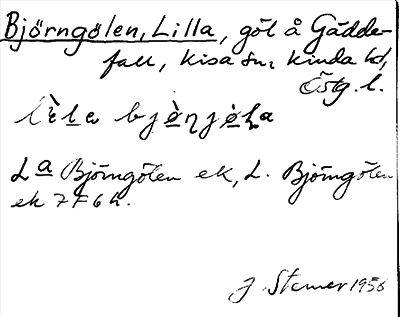 Björngölen, Lilla, göl å Gädde-
fall, Kisa sn, Kinda hd,
Östg. l.
La Björngölen ek, L. Björngölen
ek 7 F 6 h.
J. Stamer 1956